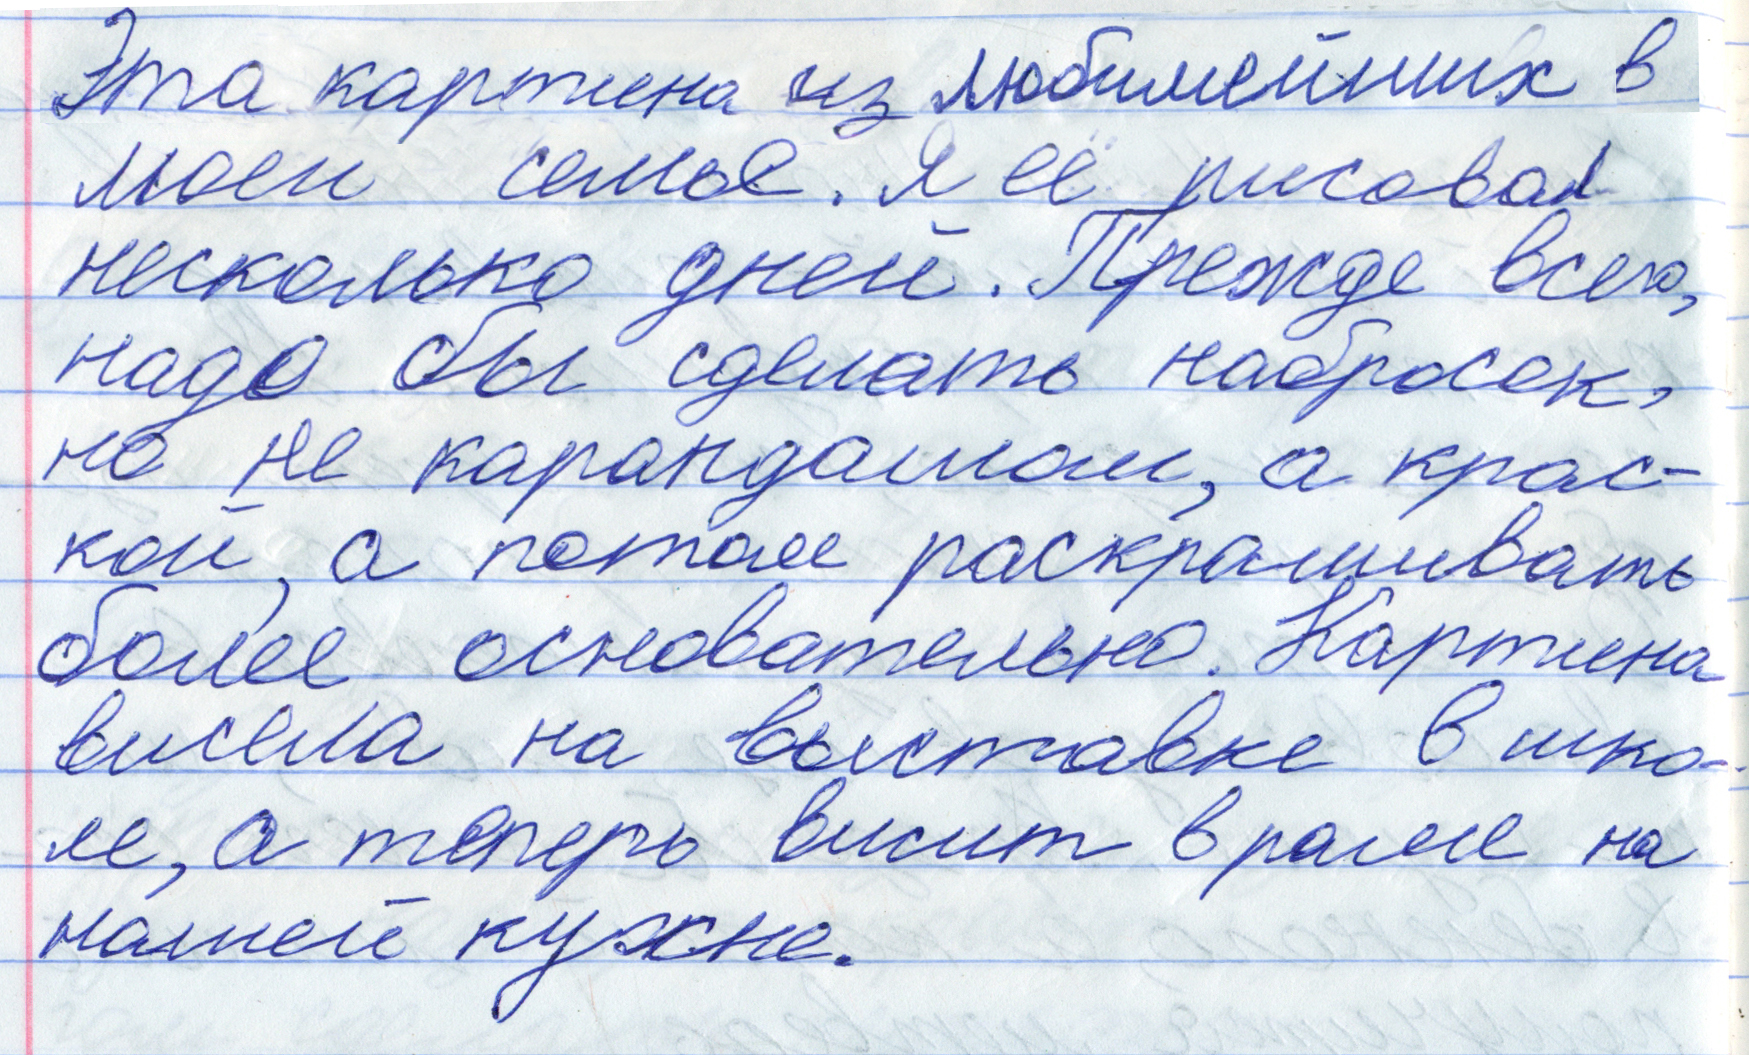 Эта картина из любимейших в
моей семье. Я её рисовал
несколько дней. Прежде всего,
надо бы сделать набросок,
но не карандашом, а крас-
кой, а потом раскрашивать
более основательно. Картина
висела на выставке в шко-
ле, а теперь висит в раме на
нашей кухне.